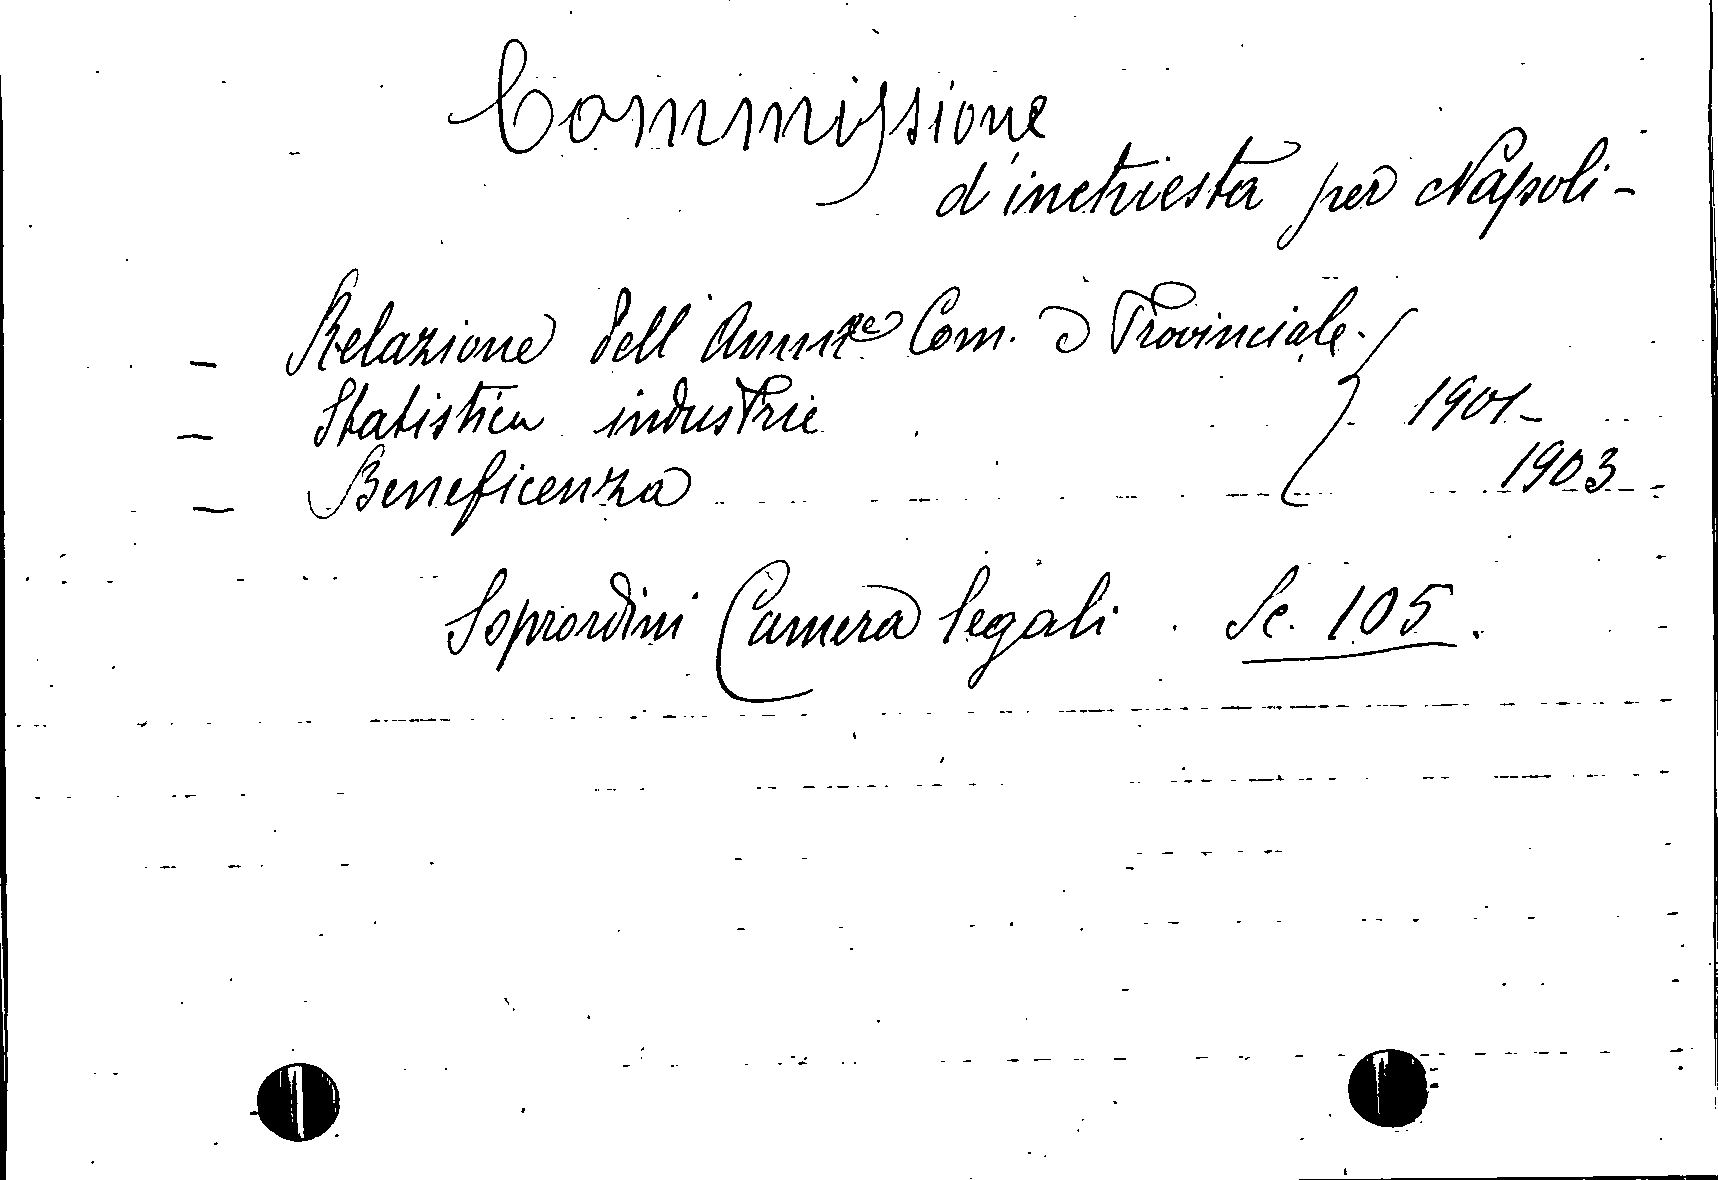 Commissione
d'inchiesta per Napoli -
- Relazione dell'Amm.ne Com. e Provinciale.
- Statistica industrie } 1901 -
- Beneficenza 1903
Soprordini Camera legali. Sc. 105.